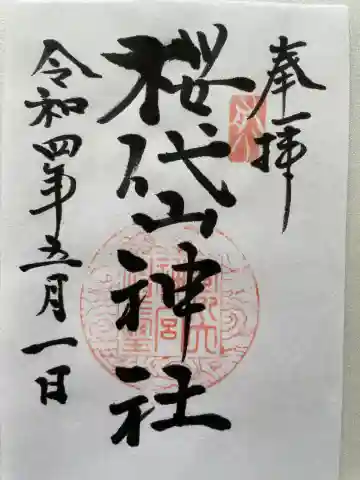 奉拝
桜代山神社
令和四年五月一日